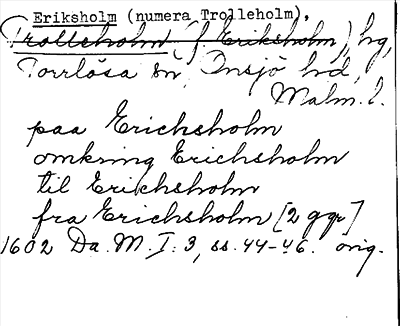 Eriksholm (numera Trolleholm).
Trolleholm (f. Eriksholm), hg,
Torrlösa sn, Onsjö hd,
Malm. l.
paa Erichsholm
omkring Erichsholm
til Erichsholm
fra Erichsholm [2 ggr]
1602 Da. M. I: 3, ss. 44-46. orig.